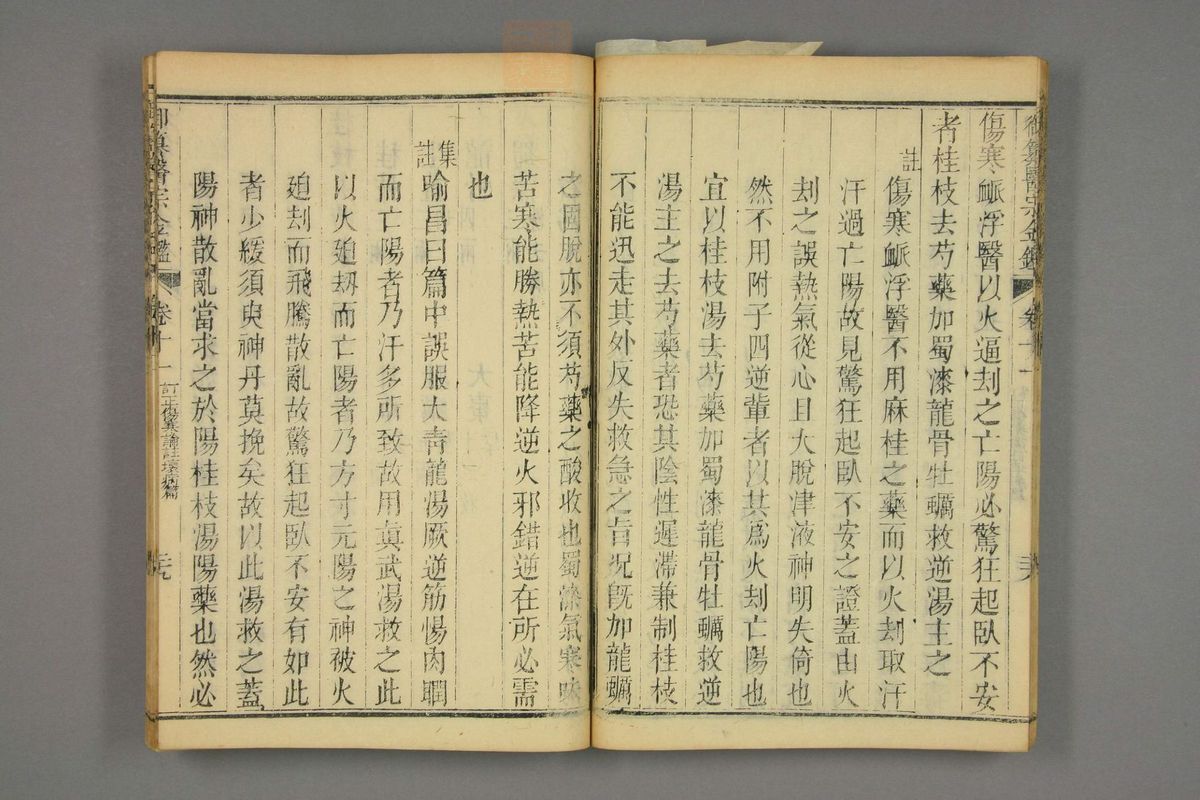 御纂醫宗金鑑 卷十一
傷寒脈浮醫以火逼刦之亡陽必驚狂起臥不安
者桂枝去芍藥加蜀漆龍骨牡蠣救逆湯主之
註
傷寒脈浮醫不用麻桂之藥而以火刦取汗
汗過亡陽故見驚狂起臥不安之證蓋由火
刦之誤熱氣從心且大脫津液神明失倚也
然不用附子四逆輩者以其爲火刦亡陽也
宜以桂枝湯去芍藥加蜀漆龍骨牡蠣救逆
湯主之去芍藥者恐其陰性遲滯兼制桂枝
不能迅走其外反失救急之旨况旣加龍蠣
之固脫亦不須芍藥之酸收也蜀漆氣寒味
苦寒能勝熱苦能降逆火邪錯逆在所必需
也
集註
喻昌曰篇中誤服大靑龍湯厥逆筋惕肉瞤
而亡陽者乃汗多所致故用眞武湯救之此
以火廹刼而亡陽者乃方寸元陽之神被火
廹刦而飛騰散亂故驚狂起臥不安有如此
者少緩須臾神丹莫挽矣故以此湯救之蓋
陽神散亂當求之於陽桂枝湯陽藥也然必
御纂醫宗金鑑 卷十一 訂正傷寒論註壞病篇